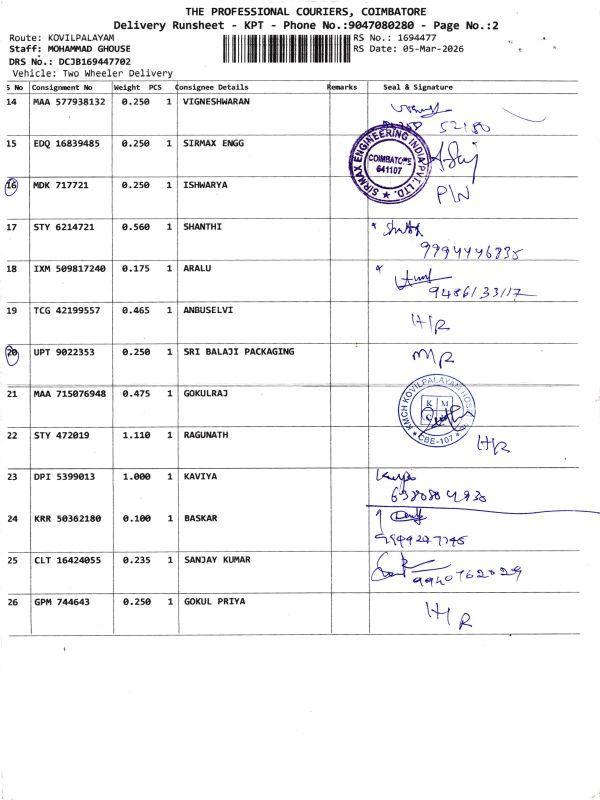 THE PROFESSIONAL COURIERS, COIMBATORE
Delivery Runsheet - KPT - Phone No.:9047080280 - Page No.:2
Route: KOVILPALAYAM
RS No.: 1694477
Staff: MOHAMMAD GHOUSE
RS Date: 05-Mar-2026
DRS No.: DCJB169447702
Vehicle: Two Wheeler Delivery
S No Consignment No Weight PCS Consignee Details Remarks Seal & Signature
14 MAA 577938132 0.250 1 VIGNESHWARAN
52180
15 EDQ 16839485 0.250 1 SIRMAX ENGG
SIRMAX ENGINEERING INDIA PVT. LTD. ★
COIMBATORE
641107
16 MDK 717721 0.250 1 ISHWARYA P/N
17 STY 6214721 0.560 1 SHANTHI
9994446835
18 IXM 509817240 0.175 1 ARALU
9486133117
19 TCG 42199557 0.465 1 ANBUSELVI H/R
20 UPT 9022353 0.250 1 SRI BALAJI PACKAGING M/R
21 MAA 715076948 0.475 1 GOKULRAJ
KMCH KOVILPALAYAM HOSPITAL
K M
C
★ CBE-107 ★
22 STY 472019 1.110 1 RAGUNATH H/R
23 DPI 5399013 1.000 1 KAVIYA
24 KRR 50362180 0.100 1 BASKAR
25 CLT 16424055 0.235 1 SANJAY KUMAR
9940762029
26 GPM 744643 0.250 1 GOKUL PRIYA H/R